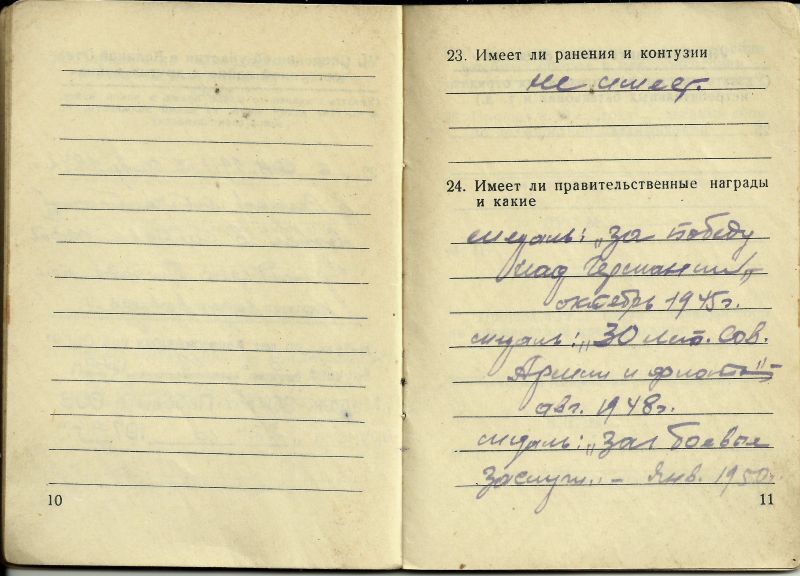 23. Имеет ли ранения и контузии
не имеет.
24. Имеет ли правительственные награды
и какие
медаль: „За победу
над Германией„
октябрь 1945 г.
медаль: „30 лет. Сов.
Армии и флота"
авг. 1948 г.
медаль: „За боевые
заслуги„ – янв. 1950 г.
10
11